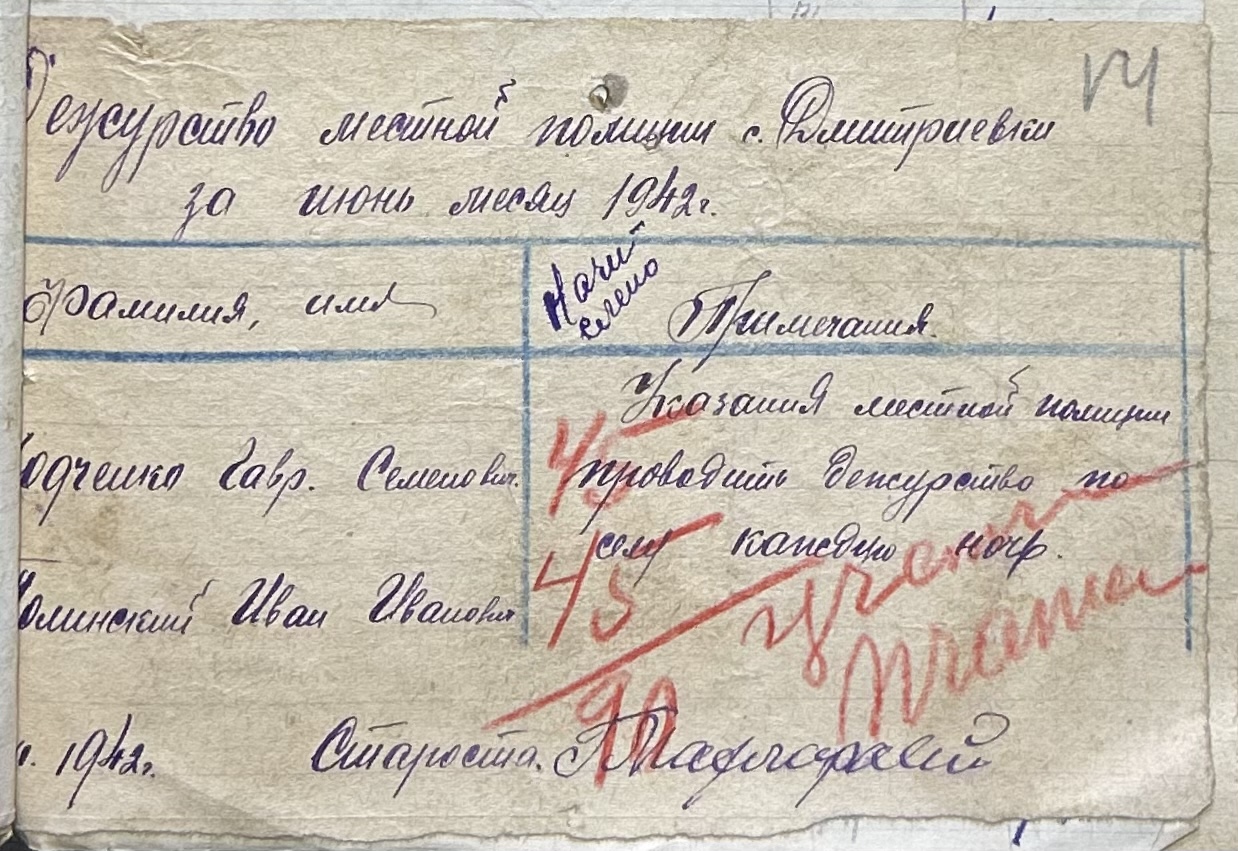 174
Дежурство местной полиции с. Дмитриевки
за июнь месяц 1942 г.
Фамилия, имя
Начислено
Примечания.
Указания местной полиции
45 проводить дежурство по
селу каждую ночь.
45
одченко Гавр. Семенович.
оминский Иван Иванович
90
1942 г. Староста.